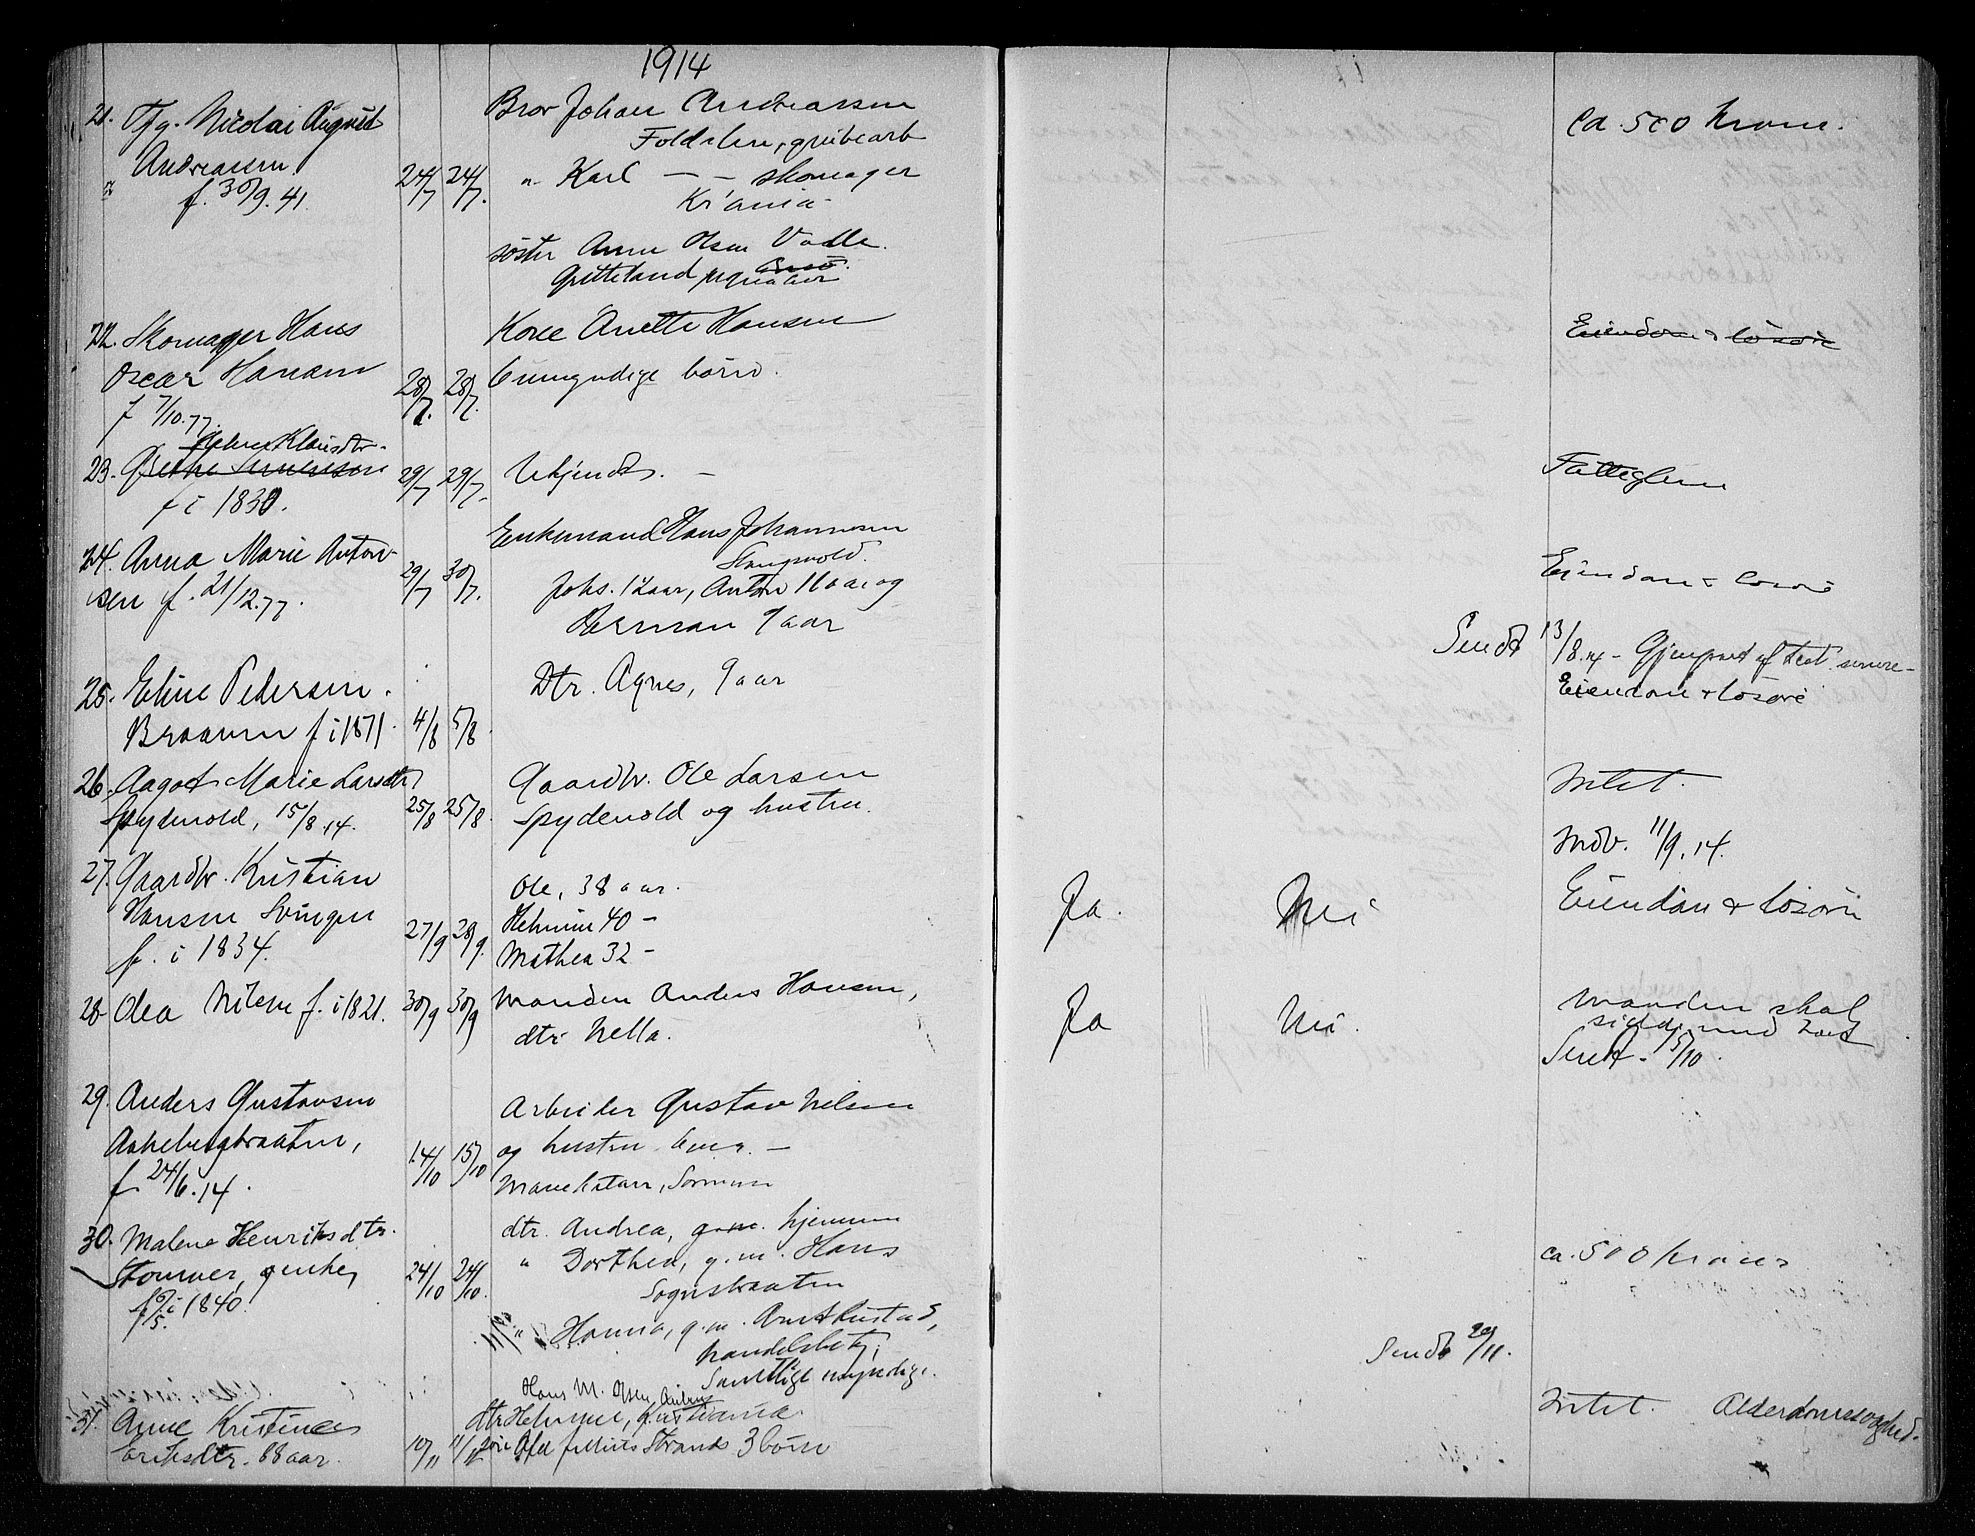 1914
21. Nicolai August Andreassen f. 30/9.41.
24/7 24/7.
Bror Johan Andreassen
Foldalen, grubearb
" Karl — — skomager
Kr'ania
søster Anne Olsen
ca. 500 Krone.
22. Skomager Hans
Oscar Hansen
f 7/10.77.
28/7. 28/7.
Kone Anette Hansen
6 umyndige børn.
Eiendom & løsøre
23. Klausdtr.
f i 1830.
29/7 29/7.
Ukjendt. —
Fattiglem
24. Anna Marie Anton-
sen f. 21/12.77.
29/7 30/7.
Enkemand Hans Johannesen
Johs. 12 aar, Anton 11 aar og
Herman 9 aar
Eiendom & løsøre
Sendt 13/8.14 – Gjenpart af test. senere –
25. Eline Pedersen
Braaten f i 1871.
4/8 5/8.
Dtr. Agnes, 9 aar
Eiendom & løsøre
26. Aagot Marie Larsdtr
Spydevold, 15/8.14.
25/8 25/8.
Gaardbr. Ole Larsen
Spydevold og hustru.
Intet.
Indb. 11/9.14.
27. Gaardbr. Kristian
Hansen Svingen
f. i 1834.
27/9 28/9.
Ole, 38 aar.
Helmine 40 –
Mathea 32 –
Ja. Nei
Eiendom & løsøre
28 Olea Nilsen f. i 1821.
30/9 30/9
Manden Anders Hansen,
dtr Nella.
Ja Nei.
Manden skal
sidde med boet
Sendt – 5/10.
29. Anders Gustavsen
Askebergbraaten,
f 24/6.14.
14/10 15/10
Arbeider Gustav Nilsen
og hustru
30. Malene Henriksdtr.
Stommer, genke,
f i 1840.
24/10 24/10.
dtr. Andrea, hjemme
" Dorthea, g.m. Hans
" Hanna, g.m.
Samtlige myndige.
ca. 500 kroner
Sendt 20/11.
31. Anne Kristine
Eriksdtr. 88 aar.
10/11 11/12
Hans M. Olsen
dtr Helmine, Kristiania
Strands 3 børn
Intet. Alderdomssvaghed.